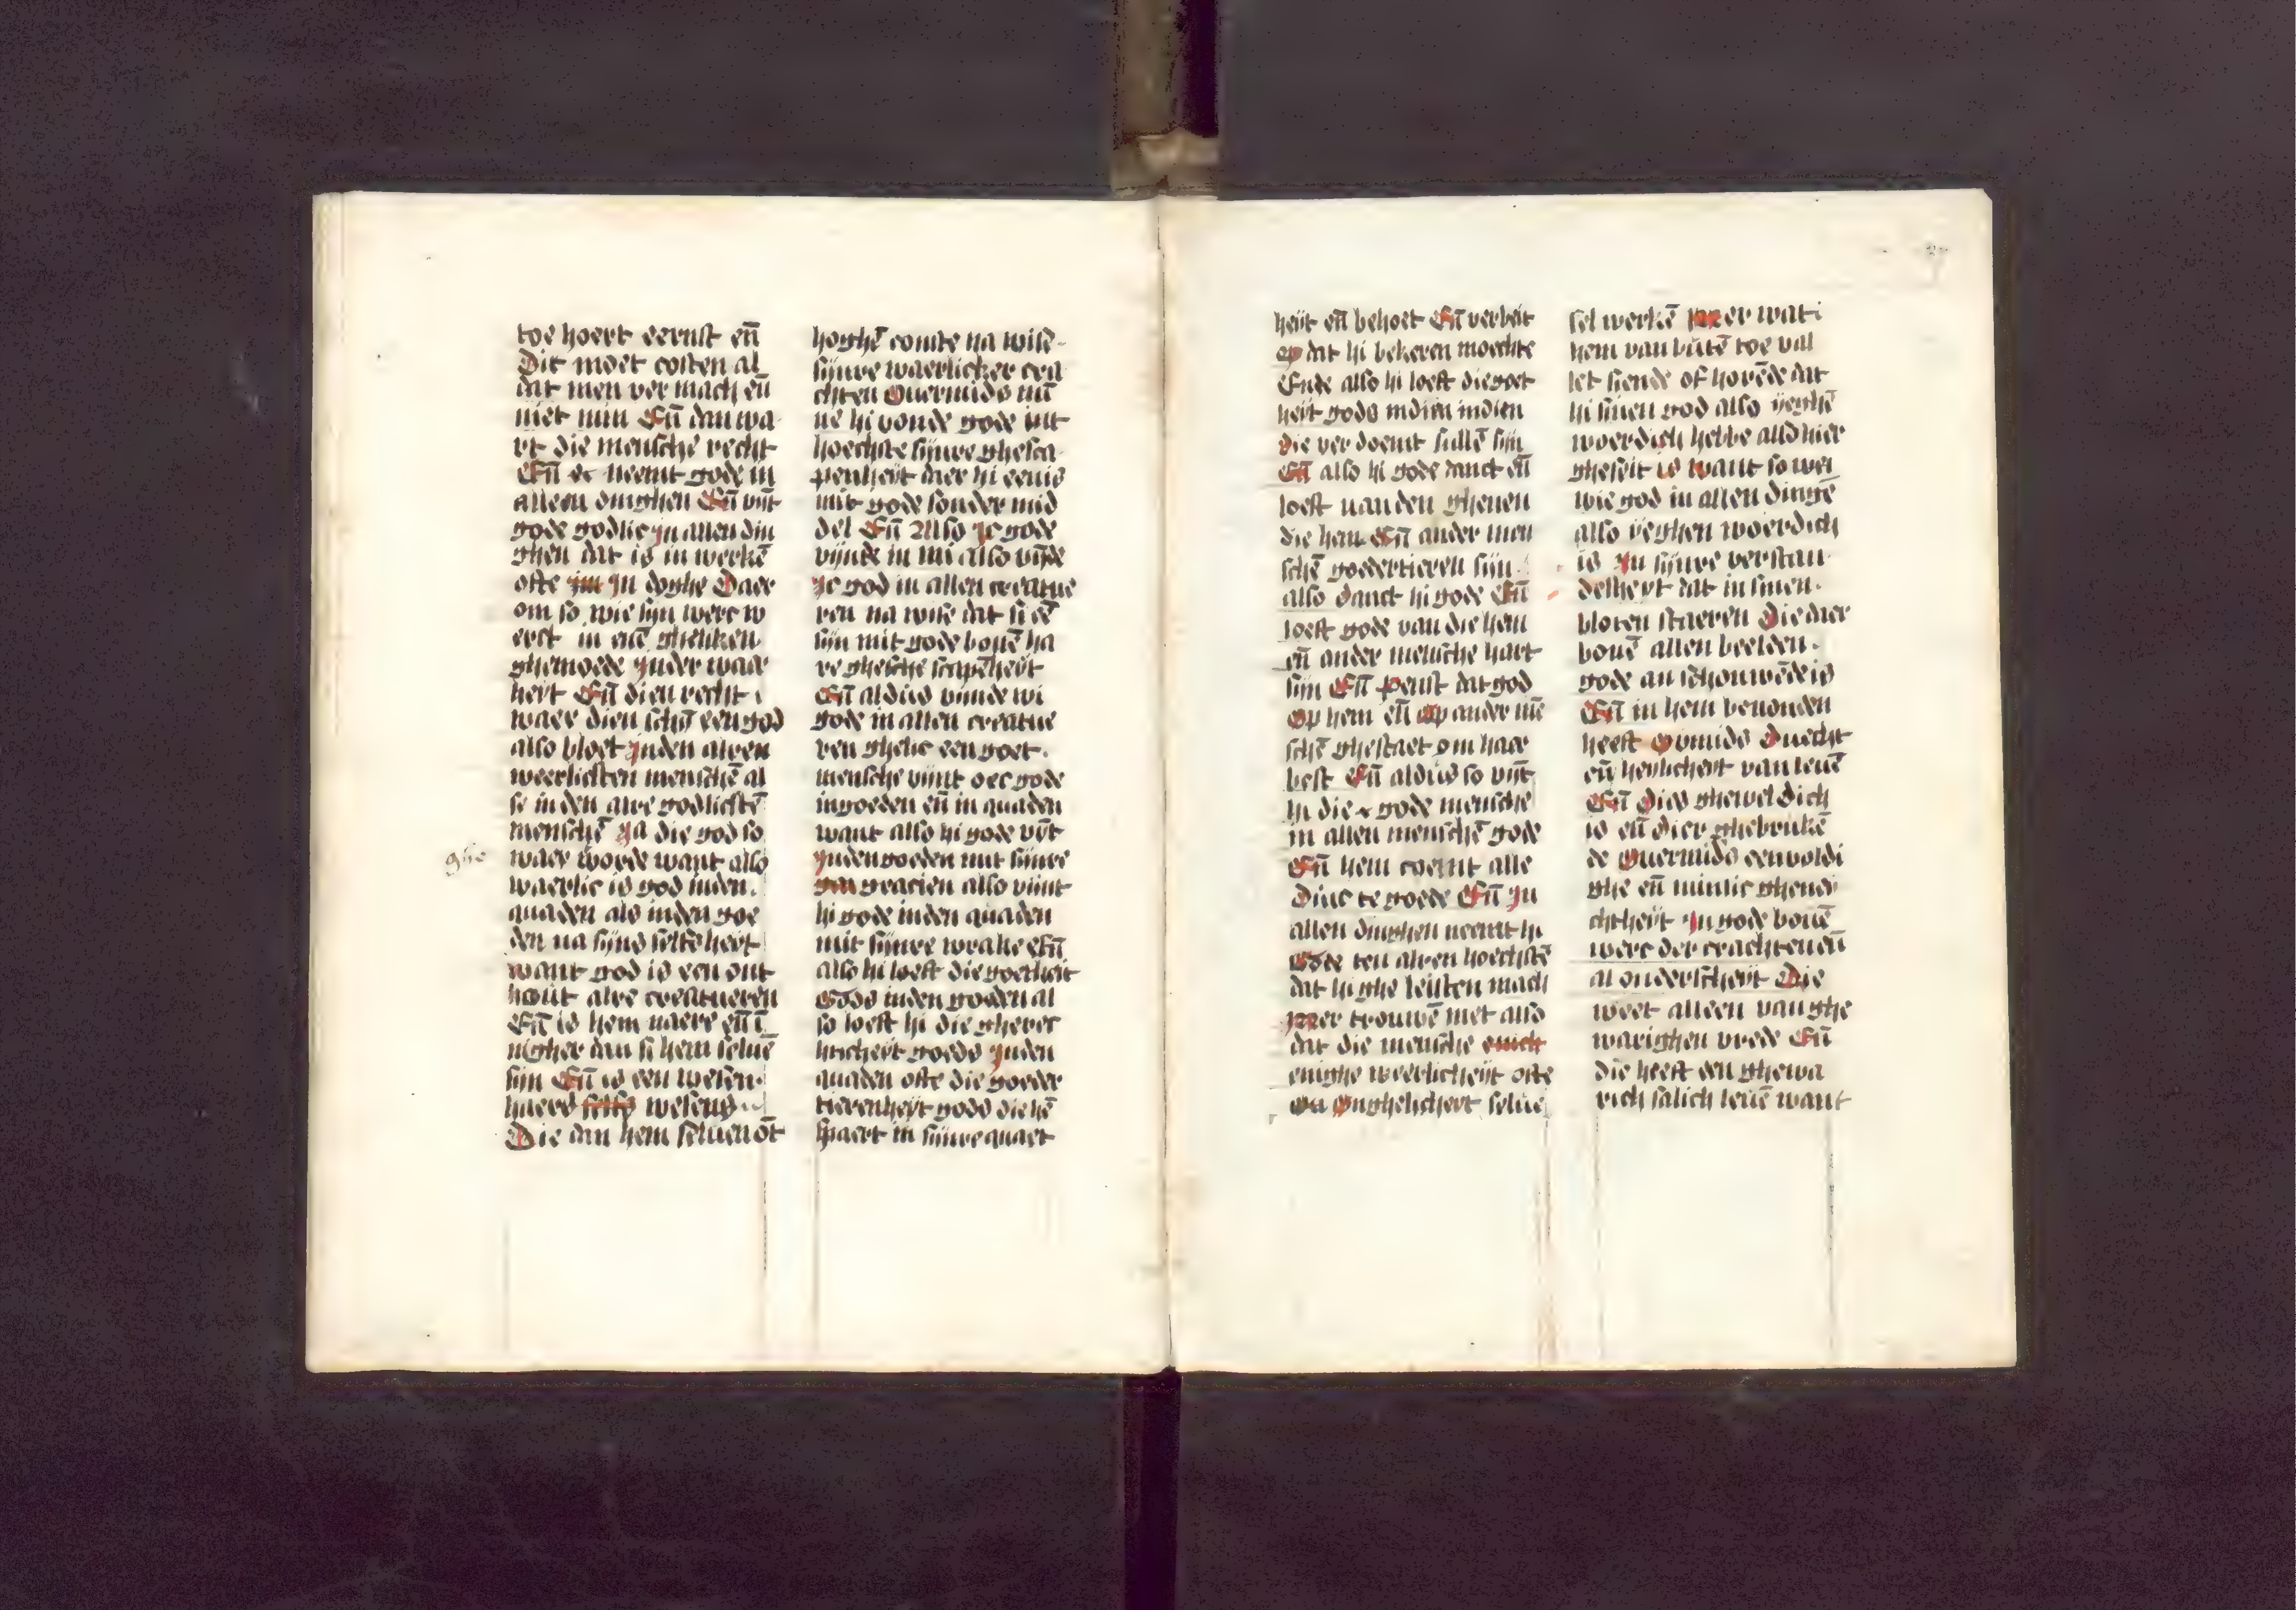 toe hoert eernst eñ
Dit moet costen al
dat men ver mach eñ
niet min Eñ dan wa
rt die mensche recht
Eñ & neemt gode in
alleen dinghen Eñ vīnt
gode godlic jn allen din
ghen dat is in werkē
ofte jn doghe Daer
om so wie sijn werc w
erct in enē ghelikēn
ghemoede jnder waer
heyt Eñ dien recht
waer dien schīt een god
also bloet jnden alren
weerlicsten menschē al
se inden alre godlicstē
menschē ja die god so
ghe
waer woede want also
waerlic is god inden
quaden als inden goe
den na sijns selfs heyt
want god is een ont
hout alre creatueren
Eñ is hem naere eñ ī
nigher dan si hem seluē
sijn Eñ is een wesen
haers selfs wesens
Die dan hem seluen ōt
hoghē comte na wise
sijnre waerlicker cra
chten Ouermids mī
ne hi vonde gode int
hoechste sijnre ghesca
penheyt daer hi eenis
mit gode sonder mid
del Eñ Also jc gode
vijnde in mi also vīnde
jc god in allen creatue
ren na wise dat si eē
sijn mit gode bouē ha
re ghesche scapēheyt
Eñ aldus vinde wi
gode in allen creatue
ren ghelic een goet
mensche vijnt oec gode
ingoeden eñ in quaden
want also hi gode vīnt
jnden goeden mit sijnre
gracien also vijnt
hi gode inden quaden
mit sijnre wrake Eñ
also hi loeft die goetheit
Gods inden goeden al
so loeft hi die gherec
hticheyt goods jnden
quaden ofte die goeder
tierenheyt gods die hē
spaert in sijnre quaet
heyt eñ behoet Eñ verbeit
op dat hi bekeren moechte
Ende also hi loeft die goet
heyt gods indien
die ver doemt sullē sijn
Eñ also hi gode danct eñ
loeft van den ghenen
die hem Eñ ander men
schē goedertieren sijn
also danct hi gode Eñ
loeft gode van die hem
eñ ander mensche hart
sijn Eñ peinst dat god
op hem eñ op ander mē
schē ghestaet om haer
best Eñ aldus so vīnt
hi die gode mensche
in allen menschē gode
Eñ hem coemt alle
dinc te goede Eñ jn
allen dinghen neemt hi
Gode ten alren hoechstē
dat hi ghe leisten mach
Mer trouwē niet also
dat die mensche
enighe weerlicheyt ofte
on ongheliicheyt selue
sel werkē Mer wat
hem van būtē toe val
let siende of horēde dat
hi sinen god also yeghē
woerdich hebbe also hier
gheseit is want so wei
wie god in allen dingē
also yeghen woerdich
is jn sijnre verstan
delheyt dat in sinen
bloten staeren Die daer
bouē allen beelden
gode an schouwēde is
Eñ in hem beuonden
heeft Ouermids duecht
eñ heylicheyt van leuē
Eñ dies gheweldich
is eñ dier ghebrukē
de Ouermids eenvoldi
ghe eñ minlic ghenei
chtheyt jn gode bouē
werc der crachten eñ
al onderscheyt Die
weet alleen van ghe
warighen vrede Eñ
die heeft een ghewa
rich salich leuē want